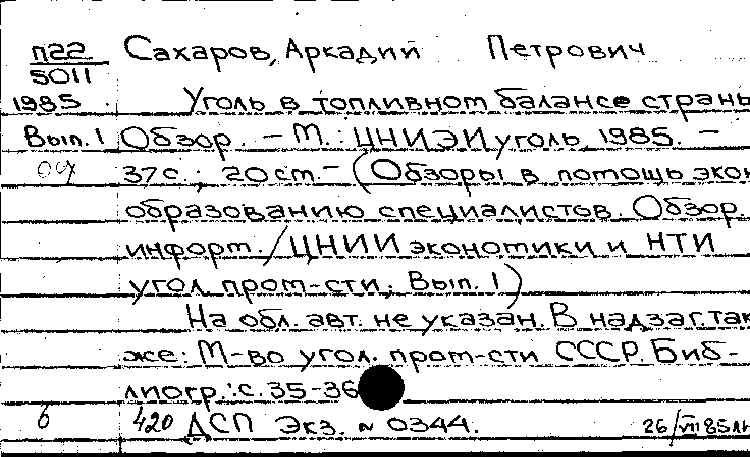 П22 Сахаров, Аркадий Петрович
5011
1985 Уголь в топливном балансе страны
Вып. 1 Обзор. – М.: ЦНИЭИуголь, 1985. –
37с.; 20см. – (Обзоры в помощь экон
образованию специалистов. Обзор.
информ. / ЦНИИ экономики и НТИ
угол. пром-сти; Вып. 1)
На обл. авт. не указан. В надзаг. так
же: М-во угол. пром-сти СССР. Биб-
лиогр.: с. 35-36
б 420 ДСП Экз. № 0344. 26/VII 85